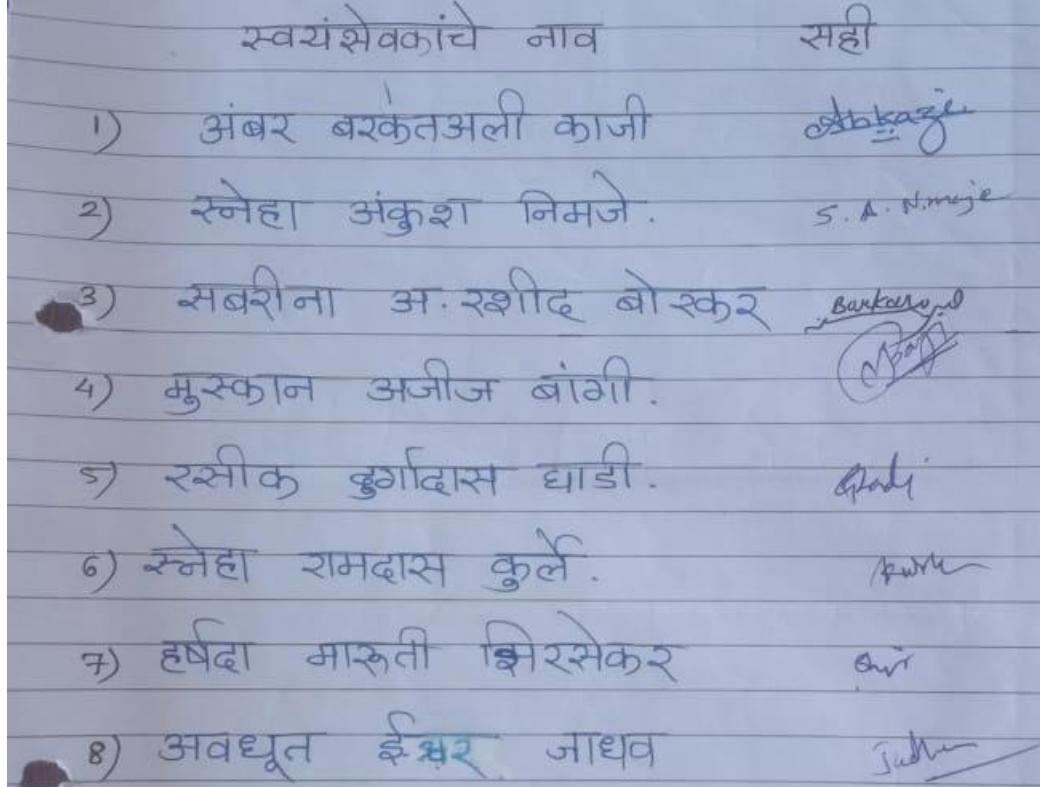 स्वयंसेवकांचे नाव सही
1) अंबर बरकतअली काजी Abkazi
2) स्नेहा अंकुश निमजे. S. A. Nimaje
3) सबरीना अ. रशीद बोरकर
4) मुस्कान अजीज बांगी.
5) रसीक दुर्गादास घाडी. Ghadi
6) स्नेहा रामदास कुर्ले.
7) हर्षदा मारुती शिरसेकर
8) अवधूत ईश्वर जाधव